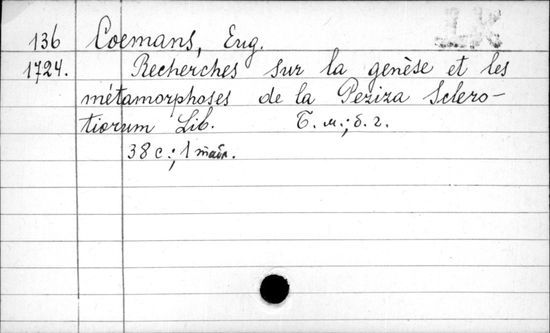 136 Coemans, Eug.
1724. Recherches sur la genèse et les
métamorphoses de la Peziza Sclero-
tiorum Lib. Б. м.; б. г.
38 с.; 1 табл.